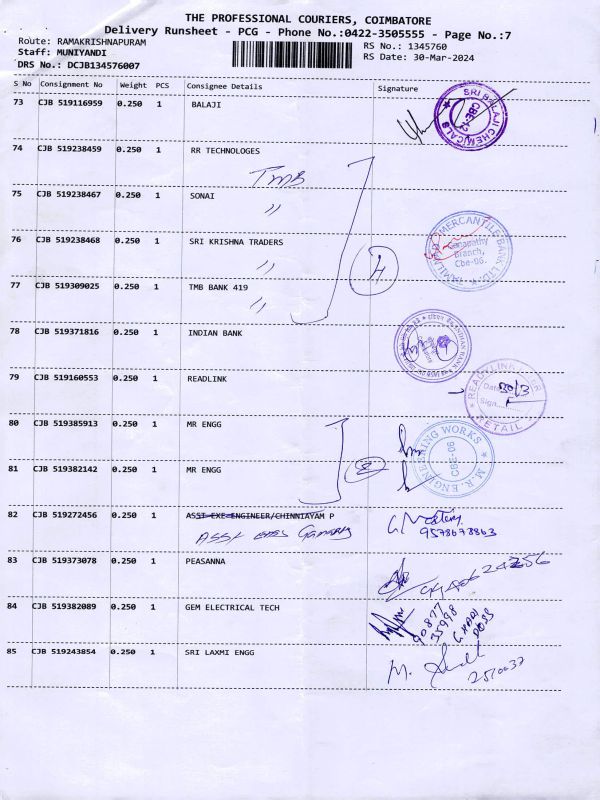 THE PROFESSIONAL COURIERS, COIMBATORE
Delivery Runsheet - PCG - Phone No.:0422-3505555 - Page No.:7
Route: RAMAKRISHNAPURAM
Staff: MUNIYANDI
DRS No.: DCJB134576007
RS No.: 1345760
RS Date: 30-Mar-2024
S No Consignment No Weight PCS Consignee Details Signature
73 CJB 519116959 0.250 1 BALAJI
SRI BALAJI CHEMICALS
CBE-12
74 CJB 519238459 0.250 1 RR TECHNOLOGES
TMB
75 CJB 519238467 0.250 1 SONAI
"
76 CJB 519238468 0.250 1 SRI KRISHNA TRADERS
"
TAMILNAD MERCANTILE BANK LTD.
Ganapathy
Branch,
Cbe-06.
77 CJB 519309025 0.250 1 TMB BANK 419
"
4
78 CJB 519371816 0.250 1 INDIAN BANK
INDIAN BANK
79 CJB 519160553 0.250 1 READLINK
READLINK
Date 30/3
Sign
RETAIL
80 CJB 519385913 0.250 1 MR ENGG
81 CJB 519382142 0.250 1 MR ENGG
2
M.R. ENGINEERING WORKS
CBE-06
82 CJB 519272456 0.250 1 ASST EXE ENGINEER/CHINNIAYAM P
9578673863
83 CJB 519373078 0.250 1 PEASANNA
84 CJB 519382089 0.250 1 GEM ELECTRICAL TECH
90877
35998
85 CJB 519243854 0.250 1 SRI LAXMI ENGG
M.
2510033